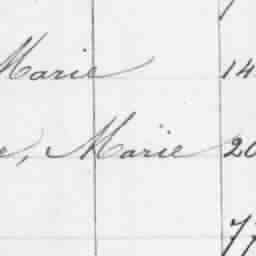 Marie 14
e, Marie 20
77